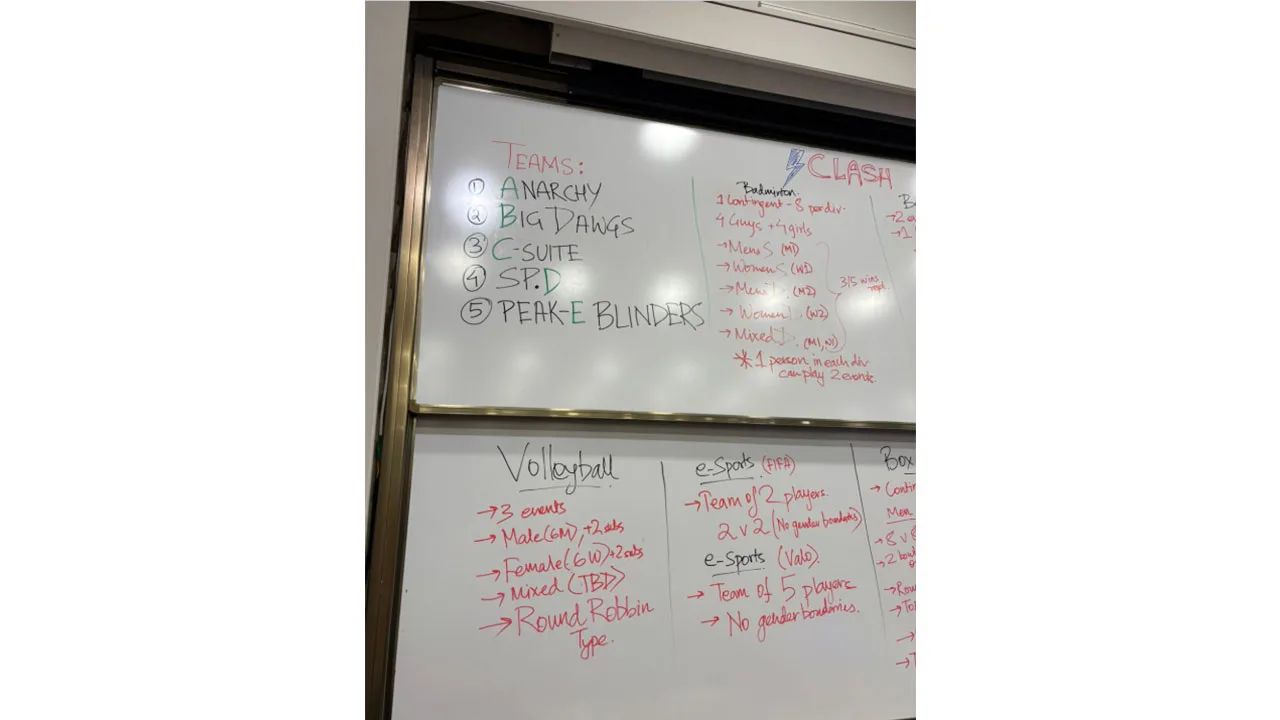 TEAMS:
① ANARCHY
② BIG DAWGS
③ C-SUITE
④ SP.D
⑤ PEAK-E BLINDERS
CLASH
Badminton.
1 Contingent - 8 per div.
4 Guys + 4 girls
→ Mens S (M1)
→ Womens S (W1)
→ Mens D. (M2)
→ Women D. (W2)
→ Mixed D. (M1,
3/5 wins
* 1 person in each div
can play 2 events.
→ 2
→ 1
Volleyball
→ 3 events
→ Male (6M), +2 subs
→ Female (6W) +2 subs
→ Mixed (TBD)
→ Round Robbin
Type.
e-Sports (FIFA)
→ Team of 2 players.
2 v 2 (No gender boundaries)
e-Sports (Valo).
→ Team of 5 players
→ No gender boundaries.
Box
→
Men
→ 8 v 8
→ 2